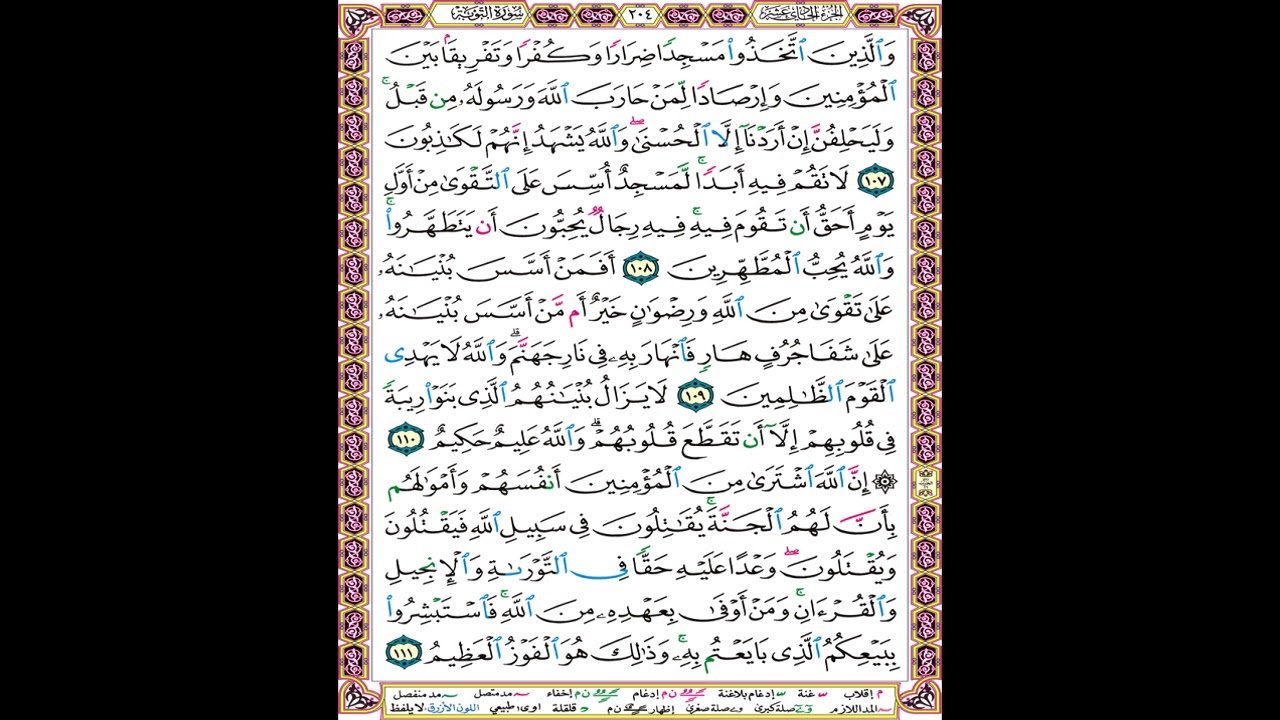 الجزء الحادي عشر ٢٠٤ سورة التوبة
وَٱلَّذِينَ ٱتَّخَذُوا۟ مَسْجِدًا ضِرَارًا وَكُفْرًا وَتَفْرِيقًۢا بَيْنَ
ٱلْمُؤْمِنِينَ وَإِرْصَادًا لِّمَنْ حَارَبَ ٱللَّهَ وَرَسُولَهُۥ مِن قَبْلُ ۚ
وَلَيَحْلِفُنَّ إِنْ أَرَدْنَآ إِلَّا ٱلْحُسْنَىٰ ۖ وَٱللَّهُ يَشْهَدُ إِنَّهُمْ لَكَـٰذِبُونَ
١٠٧ لَا تَقُمْ فِيهِ أَبَدًا ۚ لَّمَسْجِدٌ أُسِّسَ عَلَى ٱلتَّقْوَىٰ مِنْ أَوَّلِ
يَوْمٍ أَحَقُّ أَن تَقُومَ فِيهِ ۚ فِيهِ رِجَالٌ يُحِبُّونَ أَن يَتَطَهَّرُوا۟ ۚ
وَٱللَّهُ يُحِبُّ ٱلْمُطَّهِّرِينَ ١٠٨ أَفَمَنْ أَسَّسَ بُنْيَـٰنَهُۥ
عَلَىٰ تَقْوَىٰ مِنَ ٱللَّهِ وَرِضْوَٰنٍ خَيْرٌ أَم مَّنْ أَسَّسَ بُنْيَـٰنَهُۥ
عَلَىٰ شَفَا جُرُفٍ هَارٍ فَٱنْهَارَ بِهِۦ فِى نَارِ جَهَنَّمَ ۗ وَٱللَّهُ لَا يَهْدِى
ٱلْقَوْمَ ٱلظَّـٰلِمِينَ ١٠٩ لَا يَزَالُ بُنْيَـٰنُهُمُ ٱلَّذِى بَنَوْا۟ رِيبَةً
فِى قُلُوبِهِمْ إِلَّآ أَن تَقَطَّعَ قُلُوبُهُمْ ۗ وَٱللَّهُ عَلِيمٌ حَكِيمٌ ١١٠
۞ إِنَّ ٱللَّهَ ٱشْتَرَىٰ مِنَ ٱلْمُؤْمِنِينَ أَنفُسَهُمْ وَأَمْوَٰلَهُم
بِأَنَّ لَهُمُ ٱلْجَنَّةَ ۚ يُقَـٰتِلُونَ فِى سَبِيلِ ٱللَّهِ فَيَقْتُلُونَ
وَيُقْتَلُونَ ۖ وَعْدًا عَلَيْهِ حَقًّا فِى ٱلتَّوْرَىٰةِ وَٱلْإِنجِيلِ
وَٱلْقُرْءَانِ ۚ وَمَنْ أَوْفَىٰ بِعَهْدِهِۦ مِنَ ٱللَّهِ ۚ فَٱسْتَبْشِرُوا۟
بِبَيْعِكُمُ ٱلَّذِى بَايَعْتُم بِهِۦ ۚ وَذَٰلِكَ هُوَ ٱلْفَوْزُ ٱلْعَظِيمُ ١١١
م إقلاب غنة إدغام بلاغنة ن م إدغام ن م إخفاء مد متصل مد منفصل
المد اللازم صلة كبرى صلة صغرى إظهار ن م قلقلة اوى: طبيعي اللون الأزرق: لا يلفظ